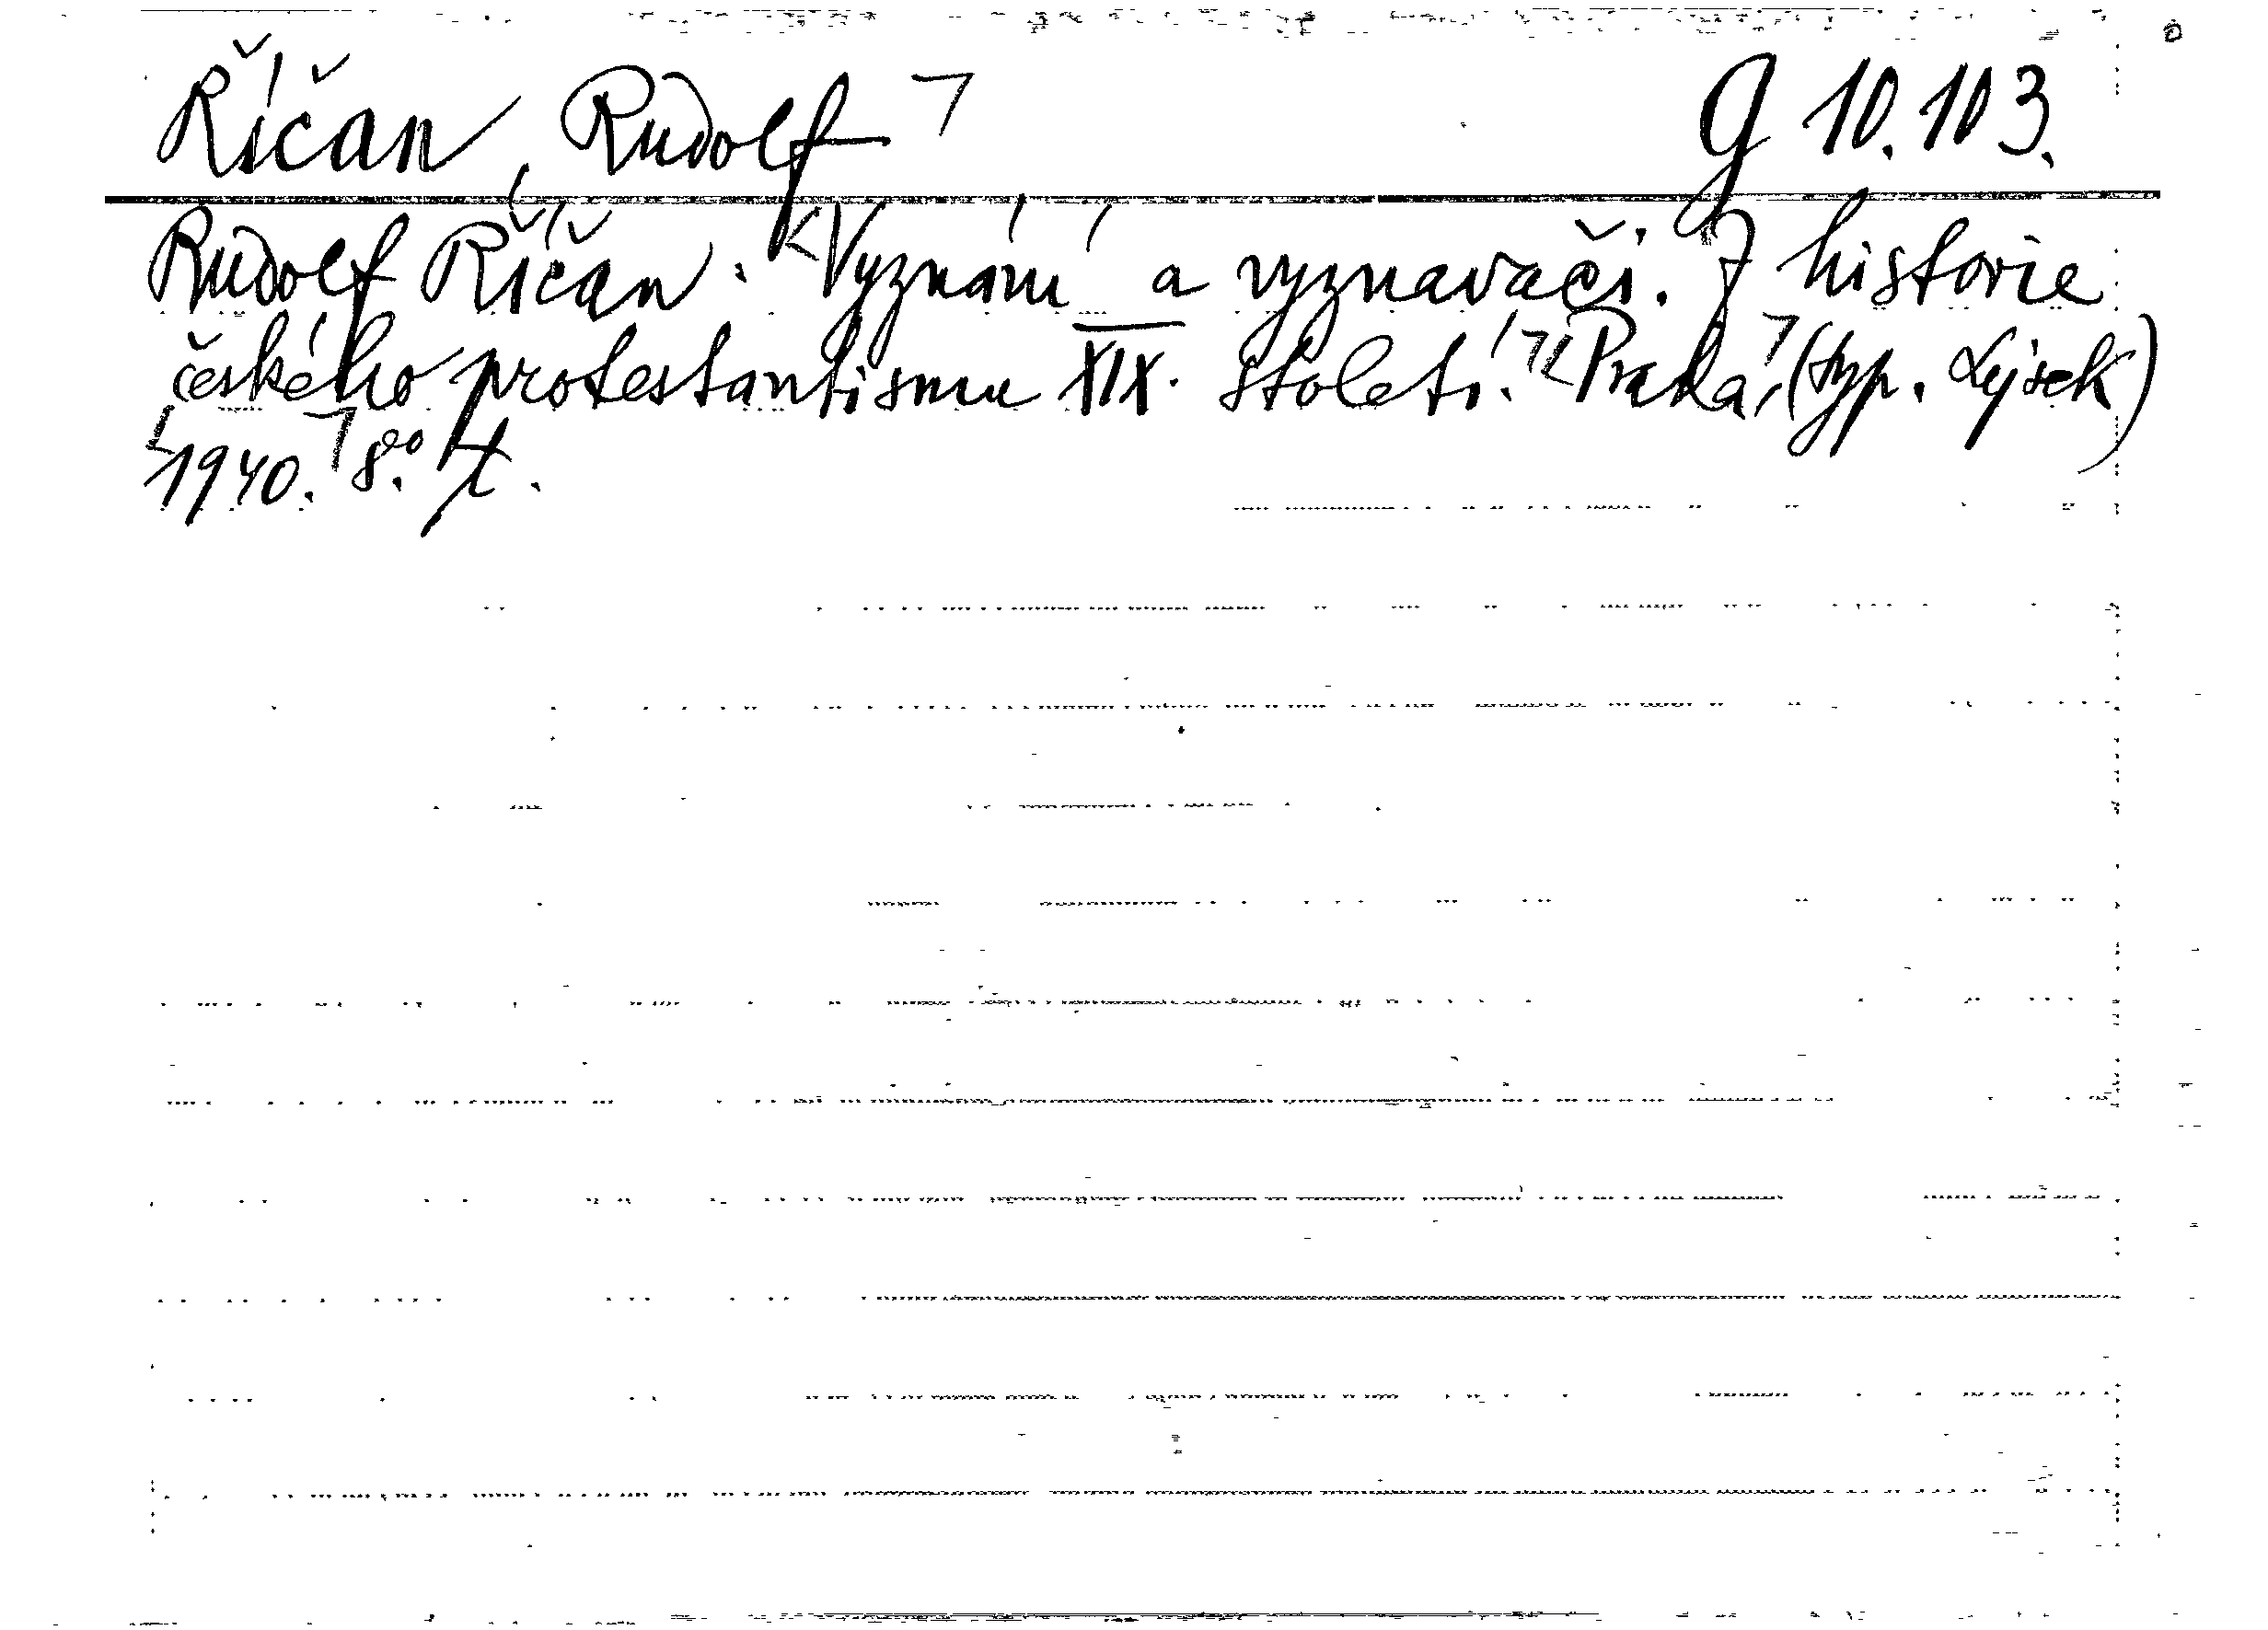 Říčan, Rudolf G 10.103.
Rudolf Říčan: Vyznání a vyznavači. Z historie
českého protestantismu XIX. století. Praha, (typ. Lýsek)
1940. 8.º